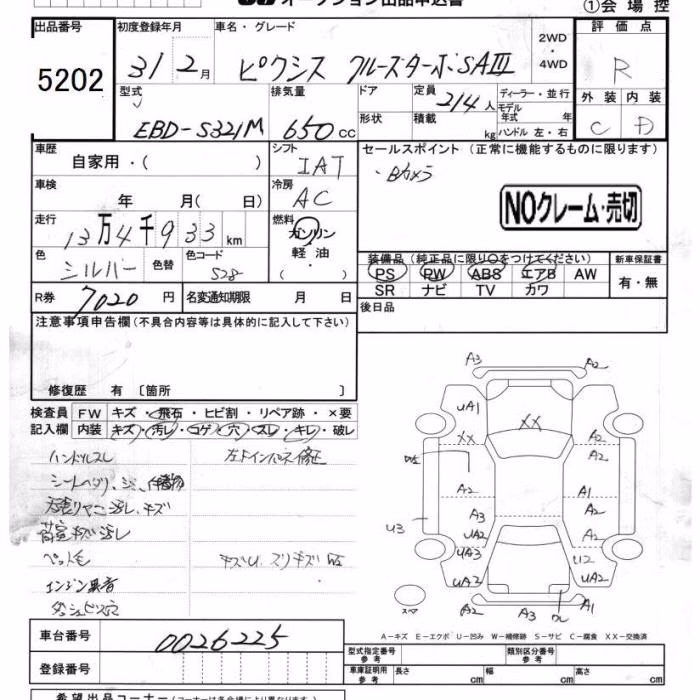 オークション出品申込書
①会場控
出品番号 5202
初度登録年月 車名・グレード 2WD・4WD 評価点
31 2月 ピクシス クルーズターボSAⅢ R
型式 排気量 ドア 定員 ディーラー・並行
214人 モデル年式 年 外装 内装
EBD-S321M 650cc 形状 積載 kg ハンドル 左・右 C D
車歴 シフト セールスポイント (正常に機能するものに限ります)
自家用・( ) IAT ・Bカメラ
車検 冷房
年 月( 日) AC
NOクレーム・売切
走行 燃料
13万4千933km ガソリン
軽油
( )
色 色替 色コード
シルバー 528
装備品 (純正品に限り○をつけてください) 新車保証書
PS PW ABS エアB AW 有・無
SR ナビ TV カワ
R券 7020円 名変通知期限 月 日
後日品
注意事項申告欄(不具合内容等は具体的に記入して下さい)
修復歴 有〔箇所 〕
検査員 FW キズ・飛石・ヒビ割・リペア跡・×要
記入欄 内装 キズ・汚レ・コゲ・穴・スレ・キレ・破レ
ハンドルスレ
天張リヤニ汚レ、キズ
荷室キズ汚レ
ペット毛
エンジン異音
ダッシュビス穴
キズU、スリキズ
A3 A2
UA1
XX XX A2
A2 A1
U3 A3 A2
UA2 A2
UA3 U2
UA3 UA2
スペア A2 A3 A1
A-キズ E-エクボ U-凹み W-補修跡 S-サビ C-腐食 XX-交換済
車台番号 0026225
登録番号
型式指定番号 参考 類別区分番号 参考
車庫証明用 参考 長さ cm 幅 cm 高さ cm
希望出品コーナー